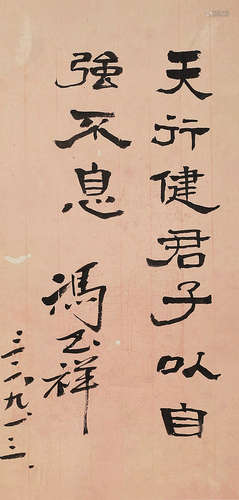 天行健君子以自
強不息
馮玉祥
三二、九、三、